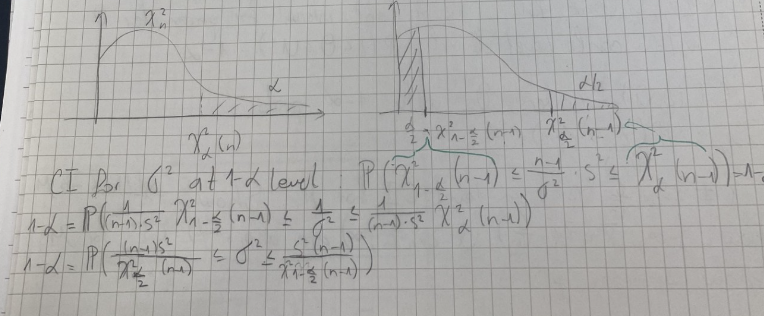 χ²ₙ
α
α/2
χ²_α(n)
α/2
χ²_{1-α/2}(n-1)
χ²_{α/2}(n-1)
CI for σ² at 1-α level P(χ²_{1-α/2}(n-1) ≤ n-1/σ² · s² ≤ χ²_α(n-1)) = 1-
1-α = P(1/(n-1)·s² χ²_{1-α/2}(n-1) ≤ 1/σ² ≤ 1/(n-1)·s² χ²_α(n-1))
1-α = P((n-1)s²/χ²_{α/2}(n-1) ≤ σ² ≤ s²(n-1)/χ²_{1-α/2}(n-1))